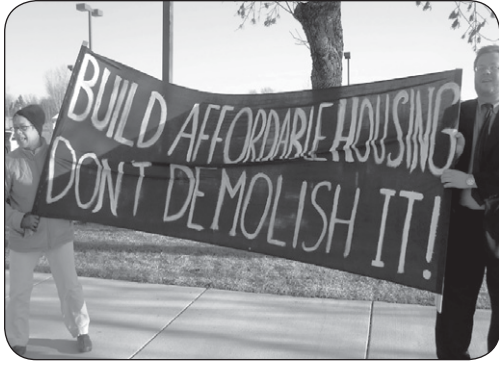 BUILD AFFORDABLE HOUSING
DON'T DEMOLISH IT!